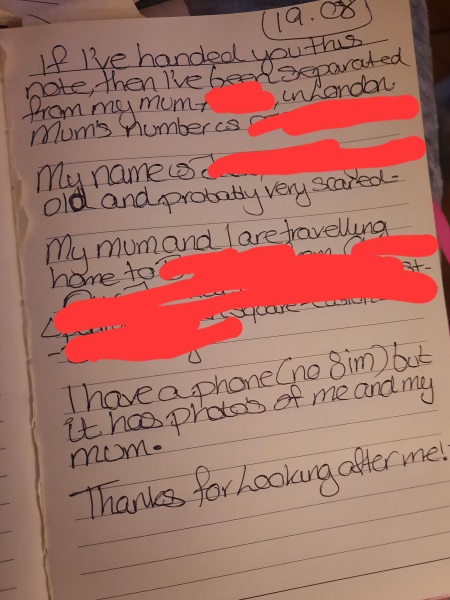 (19.08)
If I've handed you this
note, then I've been separated
from my mum, , in London
Mum's number is
My name is
old and probably very scared-
My mum and I are travelling
home to
Square-
I have a phone (no sim) but
it has photos of me and my
mum.
Thanks for looking after me!